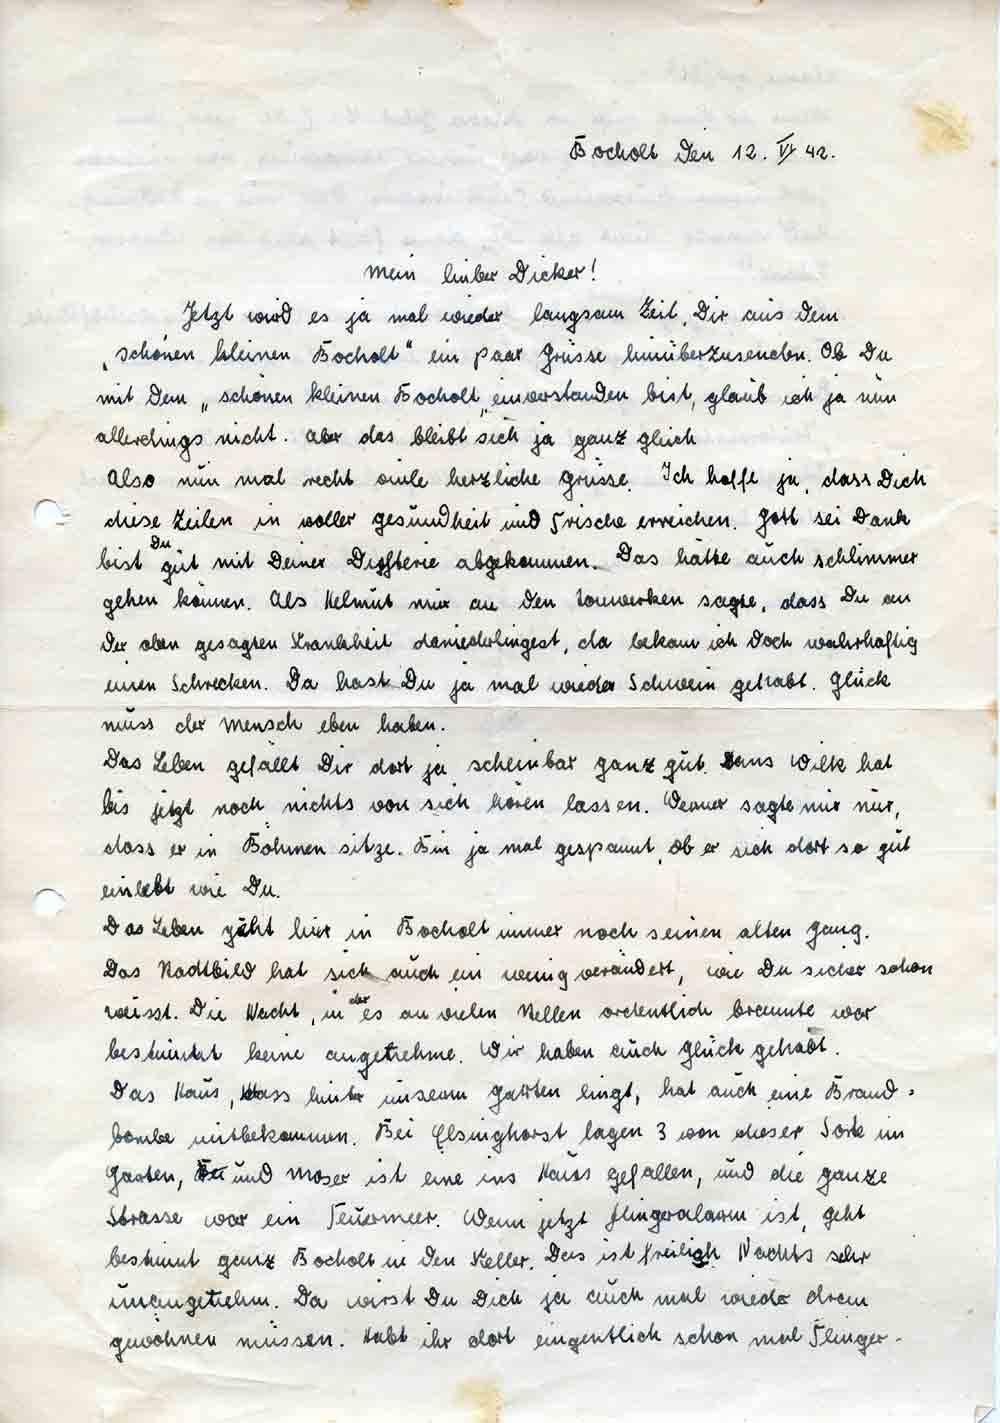 Bocholt den 12. VI 42.
Mein lieber Dicker!
Jetzt wird es ja mal wieder langsam Zeit, Dir aus dem
„schönen kleinen Bocholt" ein paar Grüsse hinüberzusenden. Ob Du
mit dem „schönen kleinen Bocholt" einverstanden bist, glaub ich ja nun
allerdings nicht. Aber das bleibt sich ja ganz gleich
Also nun mal recht viele herzliche Grüsse. Ich hoffe ja, dass Dich
diese Zeilen in voller Gesundheit und Frische erreichen. Gott sei Dank
bist Du gut mit Deiner Diphterie abgekommen. Das hätte auch schlimmer
gehen können. Als Helmut mir an den sagte, dass Du an
der oben gesagten Krankheit daniederliegest, da bekam ich doch wahrhaftig
einen Schrecken. Da hast Du ja mal wieder Schwein gehabt. Glück
muss der Mensch eben haben.
Das Leben gefällt Dir dort ja scheinbar ganz gut. Hans Wilk hat
bis jetzt noch nichts von sich hören lassen. Werner sagte mir nur,
dass er in Böhmen sitze. Bin ja mal gespannt, ob er sich dort so gut
einlebt wie Du.
Das Leben geht hier in Bocholt immer noch seinen alten Gang.
Das Stadtbild hat sich auch ein wenig verändert, wie Du sicher schon
weisst. Die Nacht, in der es an vielen Stellen ordentlich brannte war
bestimmt keine angenehme. Wir haben auch Glück gehabt.
Das Haus, dass hinter unserem Garten liegt, hat auch eine Brand-
bombe mitbekommen. Bei Elsinghorst lagen 3 von dieser Sorte im
Garten, und Moser ist eine ins Haus gefallen, und die ganze
Strasse war ein Feuermeer. Wenn jetzt Fliegeralarm ist, geht
bestimmt ganz Bocholt in den Keller. Das ist freilich Nachts sehr
unangenehm. Da wirst Du Dich ja auch mal wieder dran
gewöhnen müssen. Habt ihr dort eigentlich schon mal Flieger-